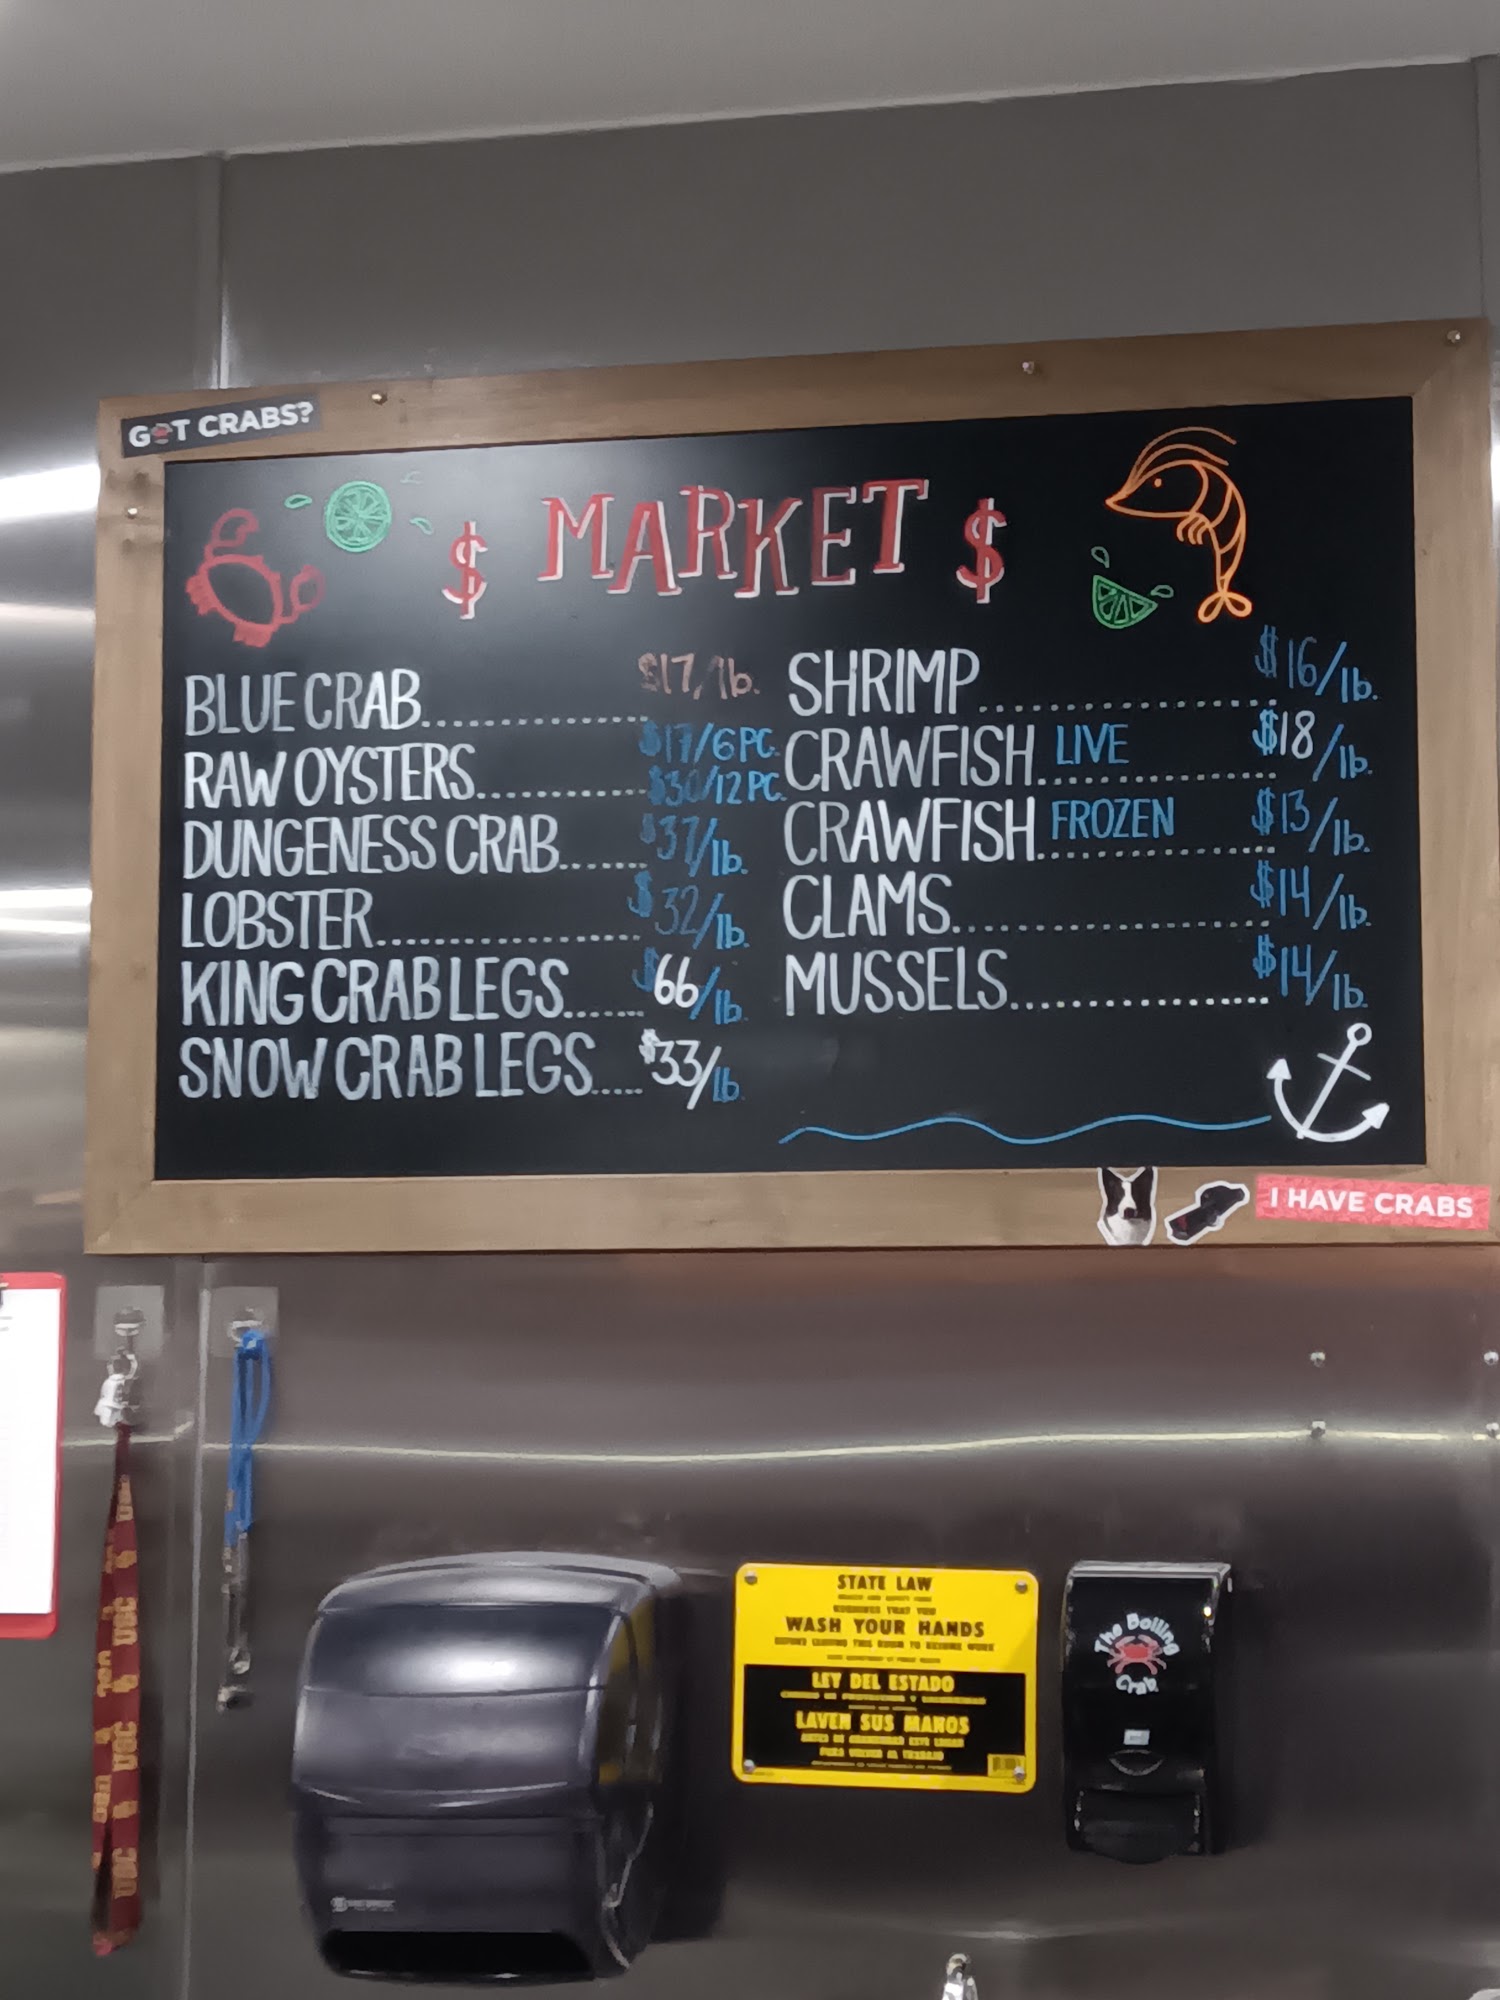 GOT CRABS?
$ MARKET $
BLUE CRAB.................. $17/lb.
RAW OYSTERS.............. $17/6PC.
$30/12PC.
DUNGENESS CRAB....... $37/lb.
LOBSTER...................... $32/lb.
KING CRAB LEGS....... $66/lb.
SNOW CRAB LEGS..... $33/lb.
SHRIMP.................. $16/lb.
CRAWFISH LIVE................ $18/lb.
CRAWFISH FROZEN................ $13/lb.
CLAMS...................... $14/lb.
MUSSELS.................. $14/lb.
I HAVE CRABS
STATE LAW
REQUIRES THAT YOU
WASH YOUR HANDS
BEFORE LEAVING THIS ROOM TO RESUME WORK
LEY DEL ESTADO
LAVEN SUS MANOS
The Boiling
Crab
USC
USC
USC